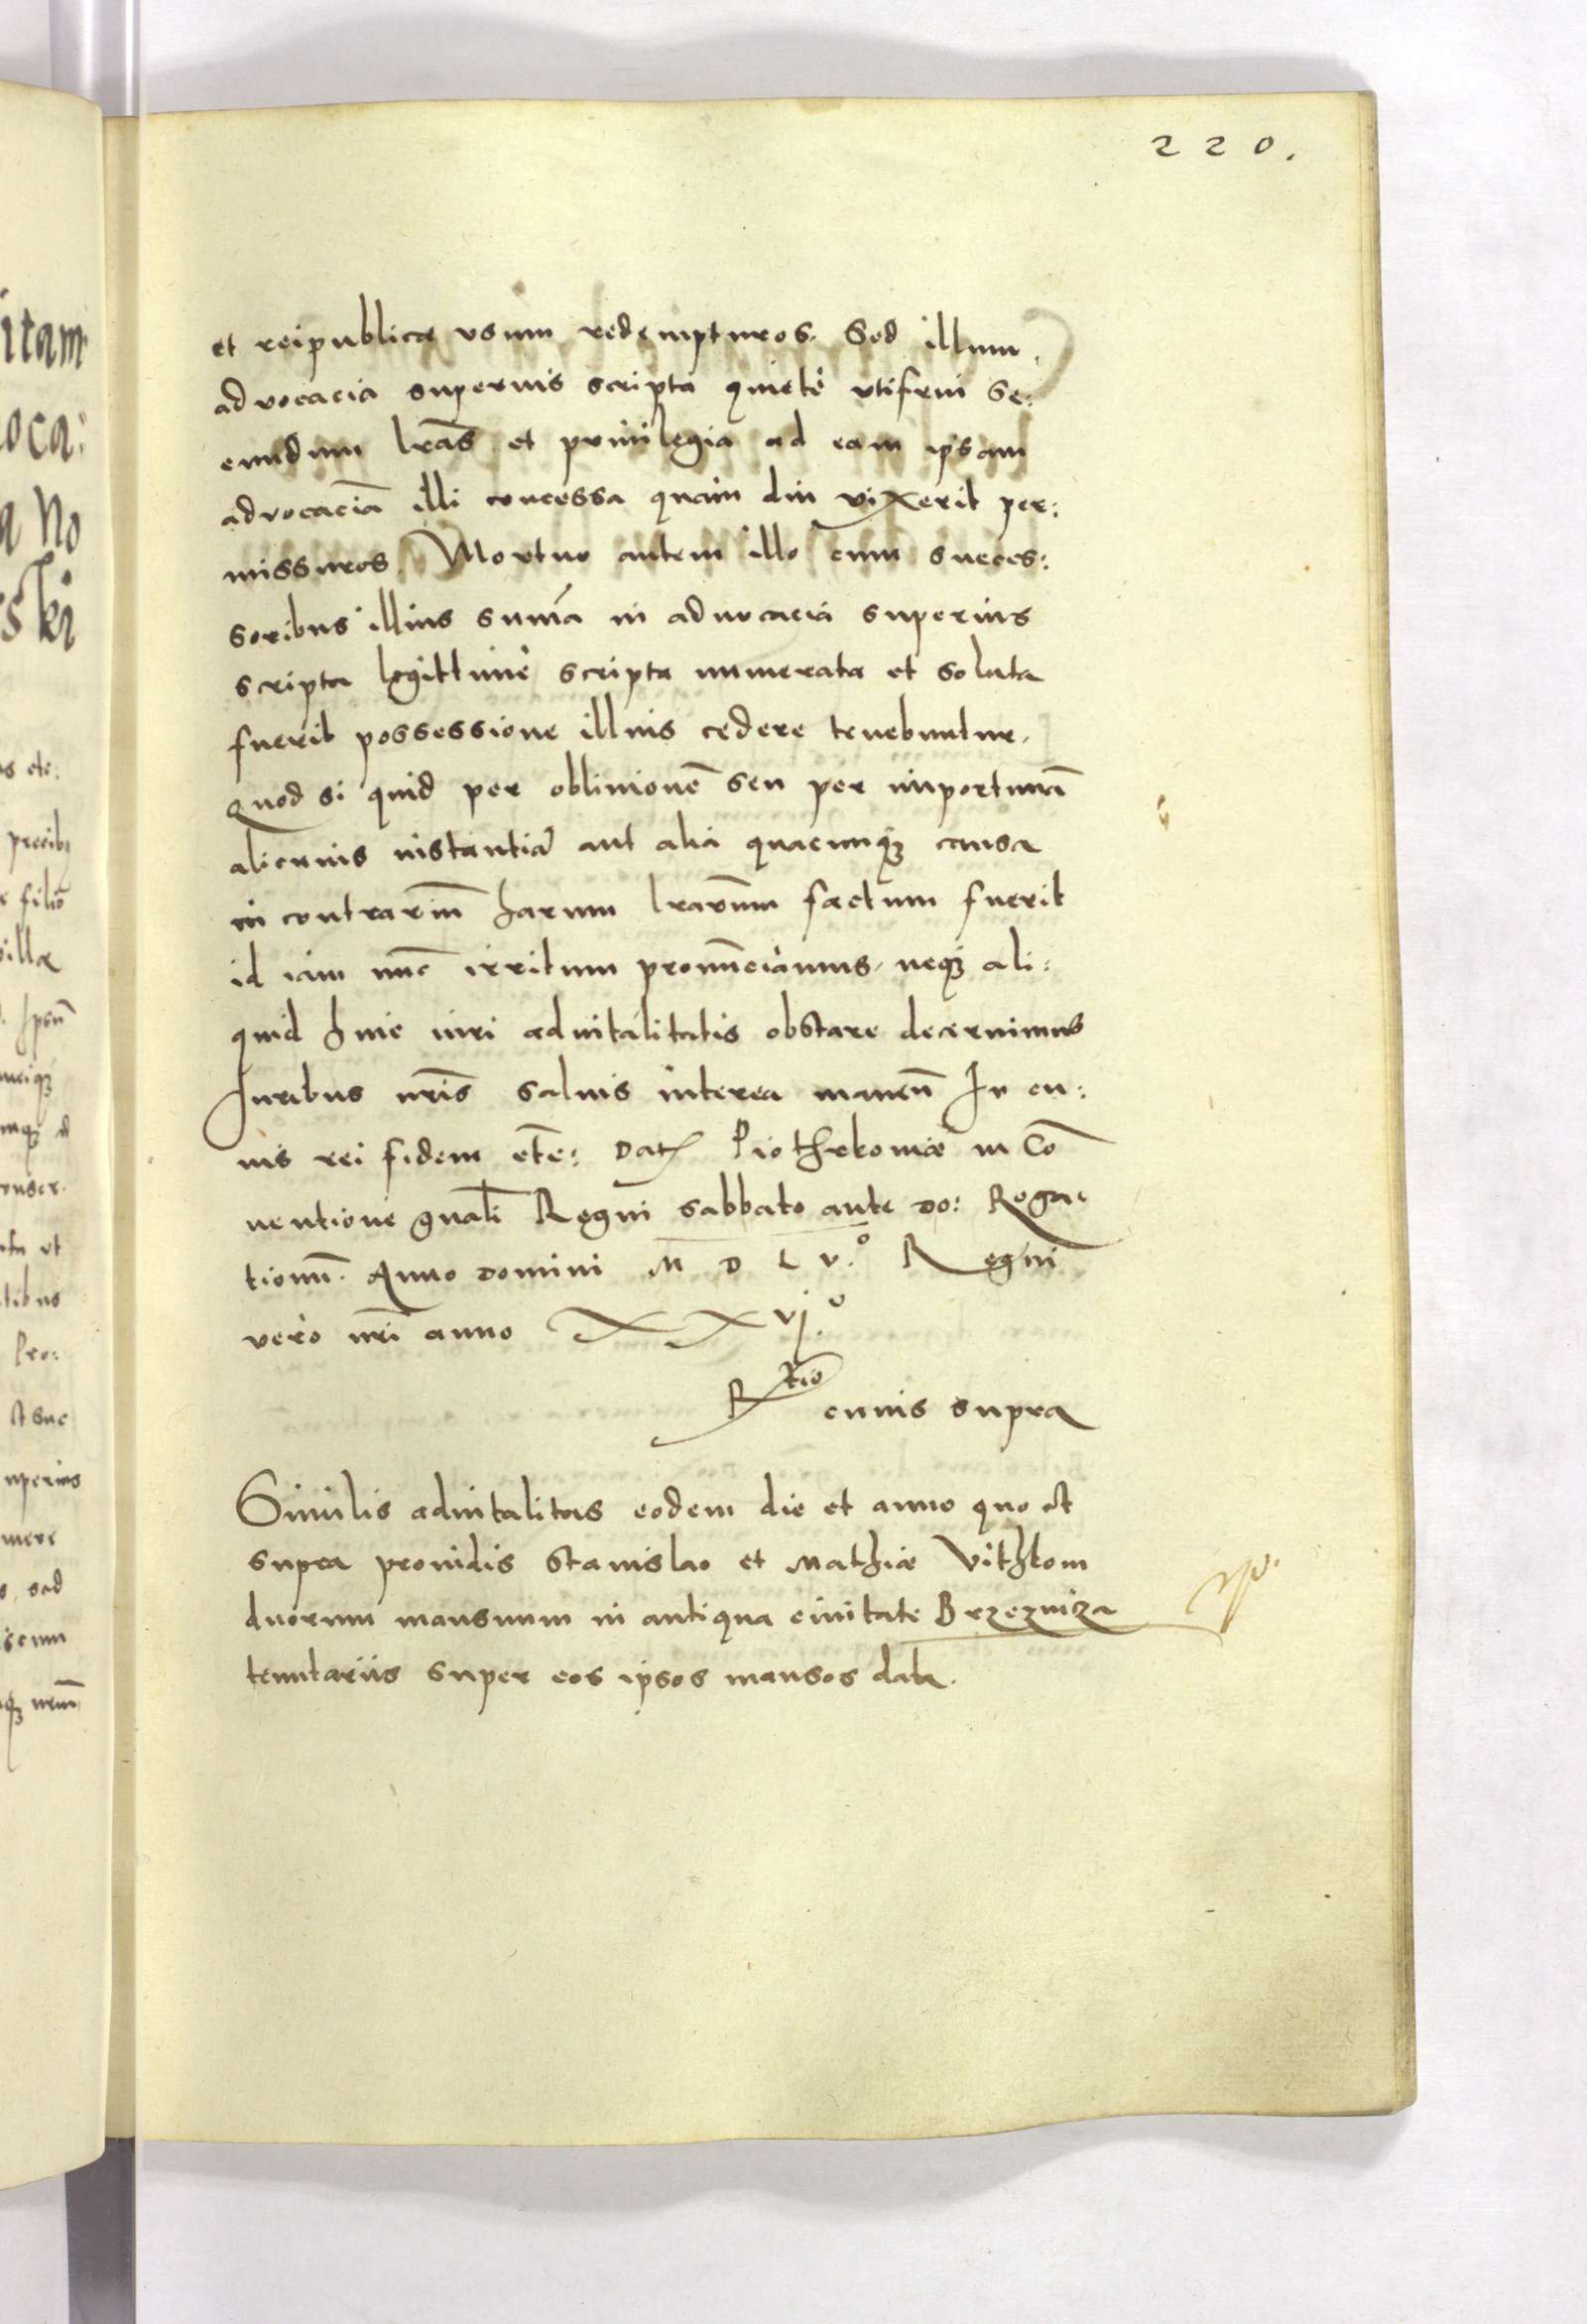 220.
et reipublicæ vsum redempturos. Sed illum
advocacia superius scripta quietè vtifrui se:
cundum lr̃as et priuilegia ad eam ipsam
advocaciã illi concessa quam diu vixerit per:
missuros. Mortuo autem illo cum succes:
soribus illius sum̃a in aduocacia superius
scripta legittime scripta numerata et soluta
fuerit possessione illius cedere tenebuntur.
Quod si quid per obliuionẽ seu per importunã
alicuius instantiã aut alia quacunq3 causa
in contrariũ harum lr̃arum factum fuerit
id iam nũc irritum pronũciamus, neq3 ali:
quid huic iuri aduitalitatis obstare decernimus
Iuribus nr̃is saluis interea maneñ In cu:
ius rei fidem etc: Dat Piothrkowiæ in Cõ
uentione gñali Regni sabbato ante Do: Roga:
tionũ. Anno Domini M D L v.º Regni
vero nr̃i anno XXvj.º
Rtio cuius supra
Similis aduitalitas eodem die et anno quo et
supra prouidis Stanislao et Mathiæ Vithkom
duorum mansuum in antiqua ciuitate Brzeznicza
tenutariis super eos ipsos mansos data.
itam
oca:
a No
ski
s etc:
precib9
filio
villæ
ut
tibus
Pro:
et suc
uperius
mere
sed